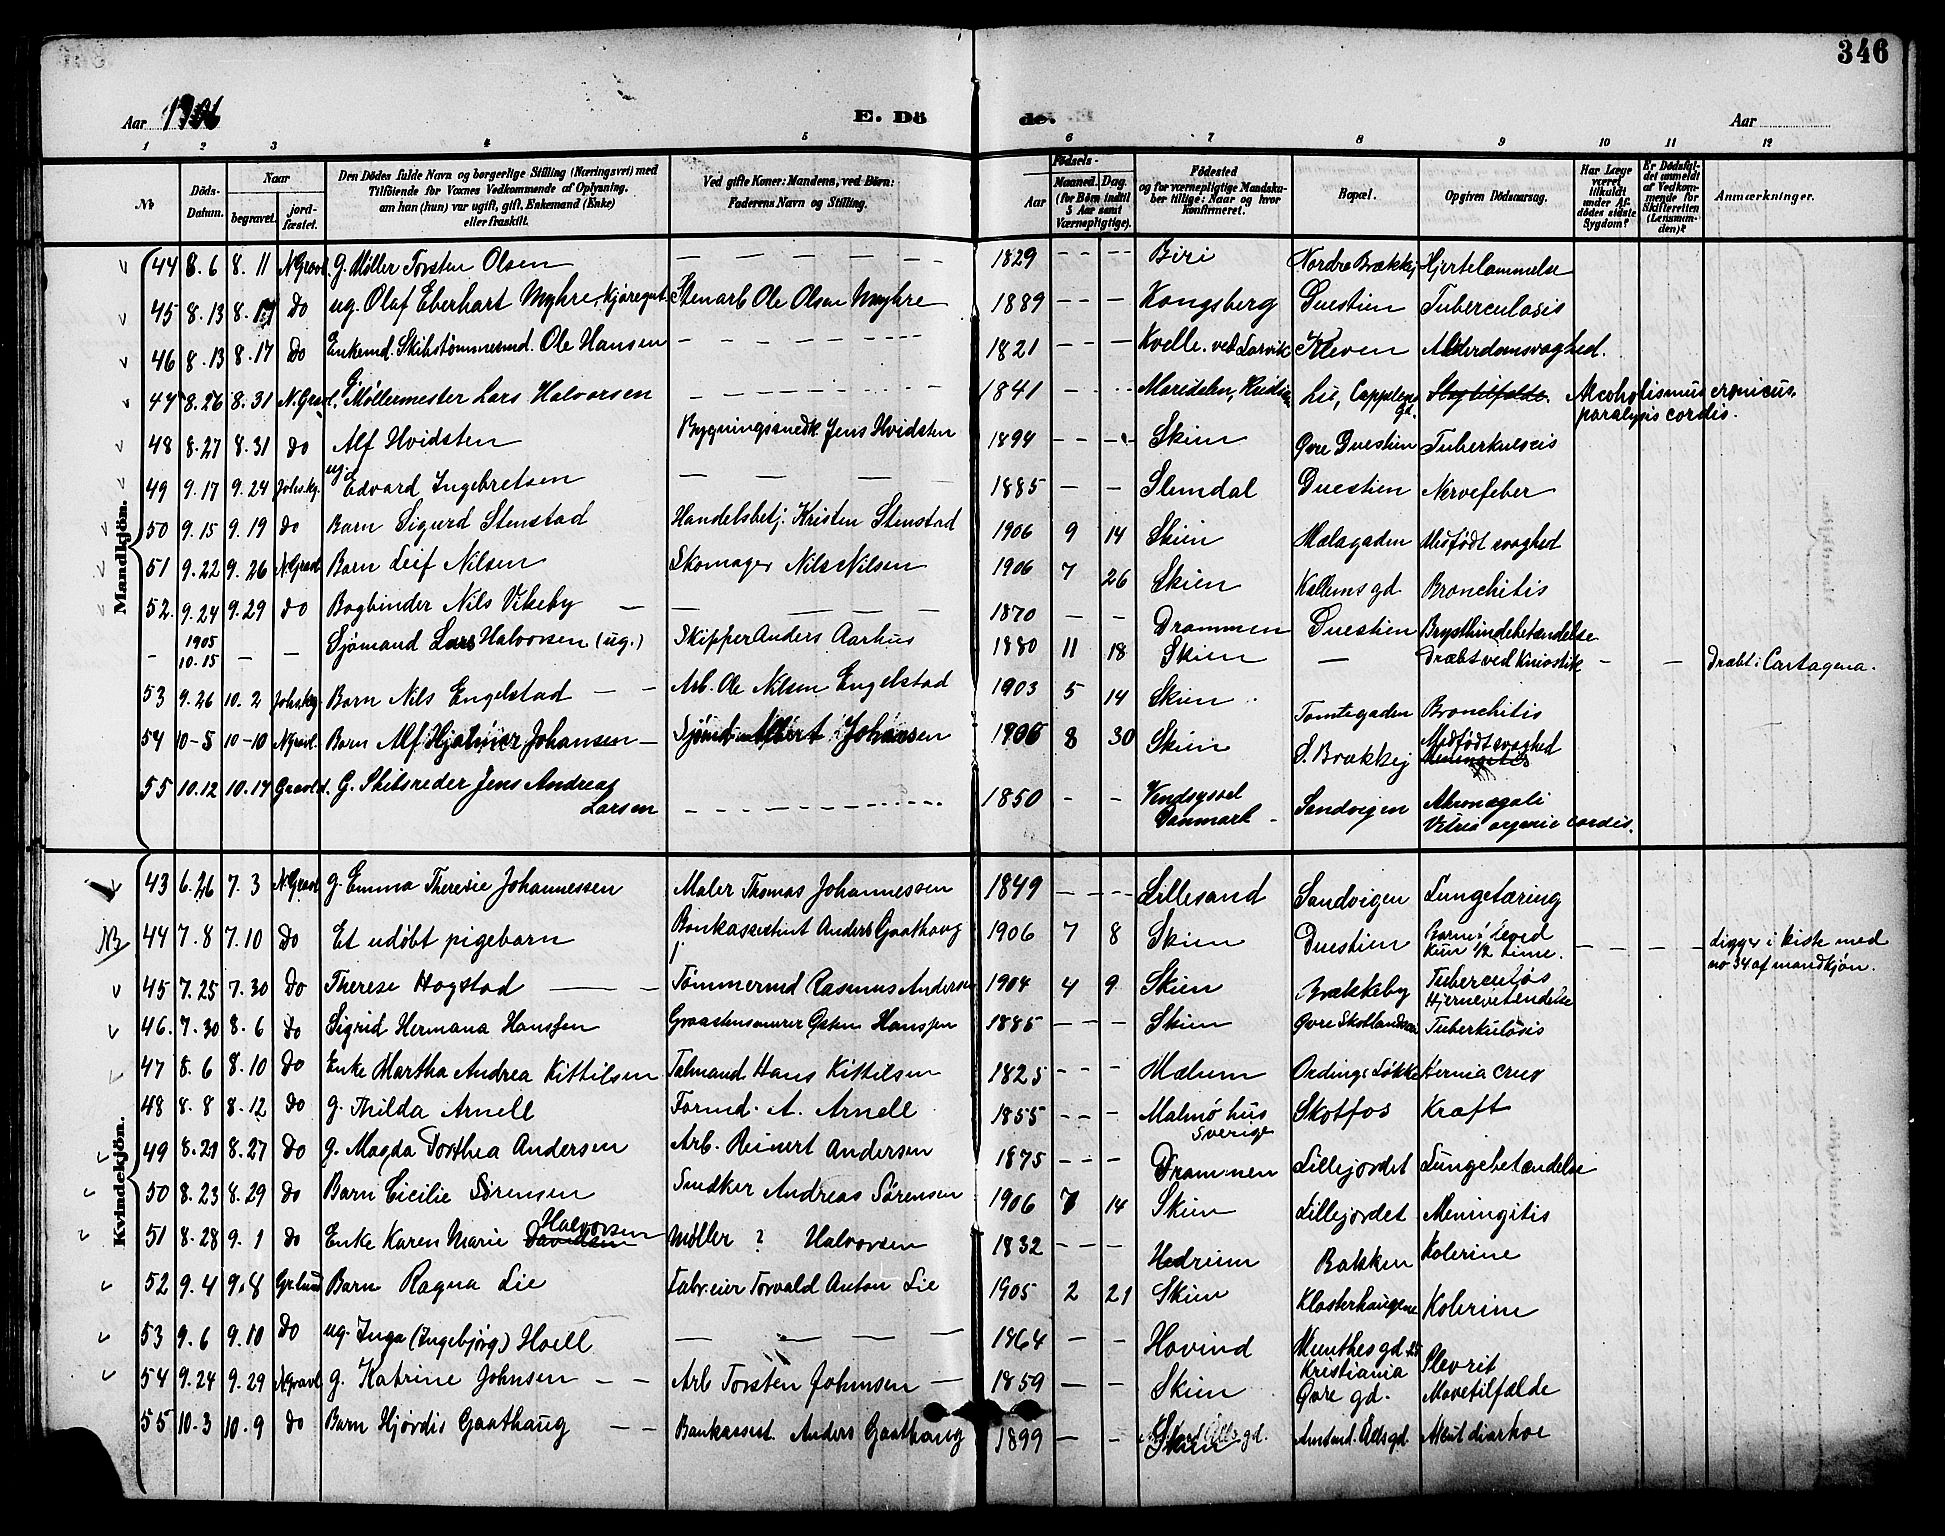 346
Aar 1906 E. Döde. Aar
1 2 3 4 5 6 7 8 9 10 11 12
No Döds-Datum. Naar begravet. jordfæstet. Den Dödes fulde Navn og borgerlige Stilling (Næringsvei) med Tilföiende for Voxnes Vedkommende af Oplysning, om han (hun) var ugift, gift, Enkemand (Enke) eller fraskilt. Ved gifte Koner: Mandens, ved Börn: Faderens Navn og Stilling. Födsels- Aar Maaned. Dag. (for Börn indtil 5 Aar samt Værnepligtige). Födested og for værnepligtige Mandskaber tillige: Naar og hvor konfirmeret. Bopæl. Opgiven Dödsaarsag. Har Læge været tilkaldt under Afdödes sidste Sygdom? Er Dödsfaldet anmeldt af Vedkommende for Skifteretten (Lensmanden)? Anmærkninger.
Mandkjön.
44 8.6 8.11 N Gravl. g. Møller Torsten Olsen — 1829 — — Biri Nordre Brækkej Hjertelammelse
45 8.13 8.17 do ug. Olaf Eberhart Myhre, kjøregut Stenarb Ole Olsen Myhre 1889 — — Kongsberg Duestien Tuberculosis
46 8.13 8.17 do Enkemd. Skibstømmermd. Ole Hansen — 1821 — — Kvelle ved Larvik Kleven Alderdomsvaghed.
47 8.26 8.31 N. Gravl. g. Møllermester Lars Halvorsen — 1841 — — Maridalen, Lie, Cappelens gd. Slagtilfælde. Alcoholismus cronicus, paralysis cordis.
48 8.27 8.31 do Alf Hvidsten Bygningssnedk Jens Hvidsten 1894 — — Skien Øvre Duestien Tuberkulosis
49 9.17 9.24 Johskg. ug. Edvard Ingebretsen — 1885 — — Slemdal Duestien Nervefeber
50 9.15 9.19 do Barn Sigurd Stenstad Handelsbetj. Kristen Stenstad 1906 9 14 Skien Mælagaden Medfødt svaghed
51 9.22 9.26 N. Gravl Barn Leif Nilsen Skomager Nils Nilsen 1906 7 26 Skien Kallems gd Bronchitis
52. 9.24 9.29 do Bogbinder Nils Vikeby — 1870 — — Drammen Duestien Brysthindebetændelse
— 1905 10.15 — — Sjømand Lars Halvorsen (ug.) Skipper Anders Aarhus 1880 11 18 Skien — Dræbt ved Knivstik — — Dræbt i Cartagena.
53 9.26 10.2 Johskg. Barn Nils Engelstad — Arb. Ole Nilsen Engelstad 1903 5 14 Skien Tomtegaden Bronchitis
54 10-5 10-10 N gravl. Barn Alf Hjalmar Johansen — Sjømd Albert Johansen 1906 8 30 Skien S. Brækkej Medfødt svaghed Meningitis
55 10.12 10.17 Gravld. G. Skibsreder Jens Andreas Larsen — 1850 — — Vendsyssel Danmark Sandvigen Akromegali Vitria organic cordis.
Kvindekjön.
43 6.26 7.3 N. Gravl g. Emma Theresie Johannessen Maler Thomas Johannessen 1849 — — Lillesand Sandvigen Lungetæring
NB 44 7.8 7.10 do Et udøbt pigebarn Bankassistent Anders Gaathaug 1906 7 8 Skien Duestien Barnet leved kun 1/2 time. — — — Ligger i kiste med no 34 af mandkjøn.
45 7.25 7.30 do Therese Hogstad — Tømmermd Rasmus Andersen 1904 4 9 Skien Brækkeby Tuberculøs Hjernebetendelse
46. 7.30 8.6 do Sigrid Hermana Hanssen Graastensmurer Østen Hanssen 1885 — — Skien Øvre Tuberkulosis
47 8.6 8.10 do Enke Martha Andrea Kittilsen Talmand Hans Kittilsen 1825 — — Mælum Ordings Løkke Hernia crur
48 8.8 8.12 do g. Thilda Arnell Formd. A. Arnell 1855 — — Malmøhus Sverige Skotfos Kræft
49 8.21 8.27 do g. Magda Torthea Andersen Arb. Reinert Andersen 1875 — — Drammen Lillejordet Lungebetændelse
50 8.23 8.29 do Barn Cicilie Sørensen Snedker Andreas Sørensen 1906 7 14 Skien Lillejordet Meningitis
51 8.28 9.1 do Enke Karen Marie Davidsen Halvorsen Møller ? Halvorsen 1832 — — Hedrum Bakken Kolerine
52 9.4 9.8 Gr.lund Barn Ragna Lie Fabr.eier Torvald Anton Lie 1905 2 21 Skien Klosterhaugene Kolerine
53 9.6 9.10 do ug. Inga (Ingebjørg) Hoell — 1864 — — Hovind Munthes gd 25 Kristiania Plevrit
54 9.24 9.29 N Gravl g. Katrine Johnsen — Arb Torsten Johnsen — 1859 — — Skien Øvre gd. Mavetilfælde
55 10.3 10.9 do Barn Hjørdis Gaathaug — Bankassist. Anders Gaathaug 1899 — — Skien Amtmd. Alls gd Akut diarhoe